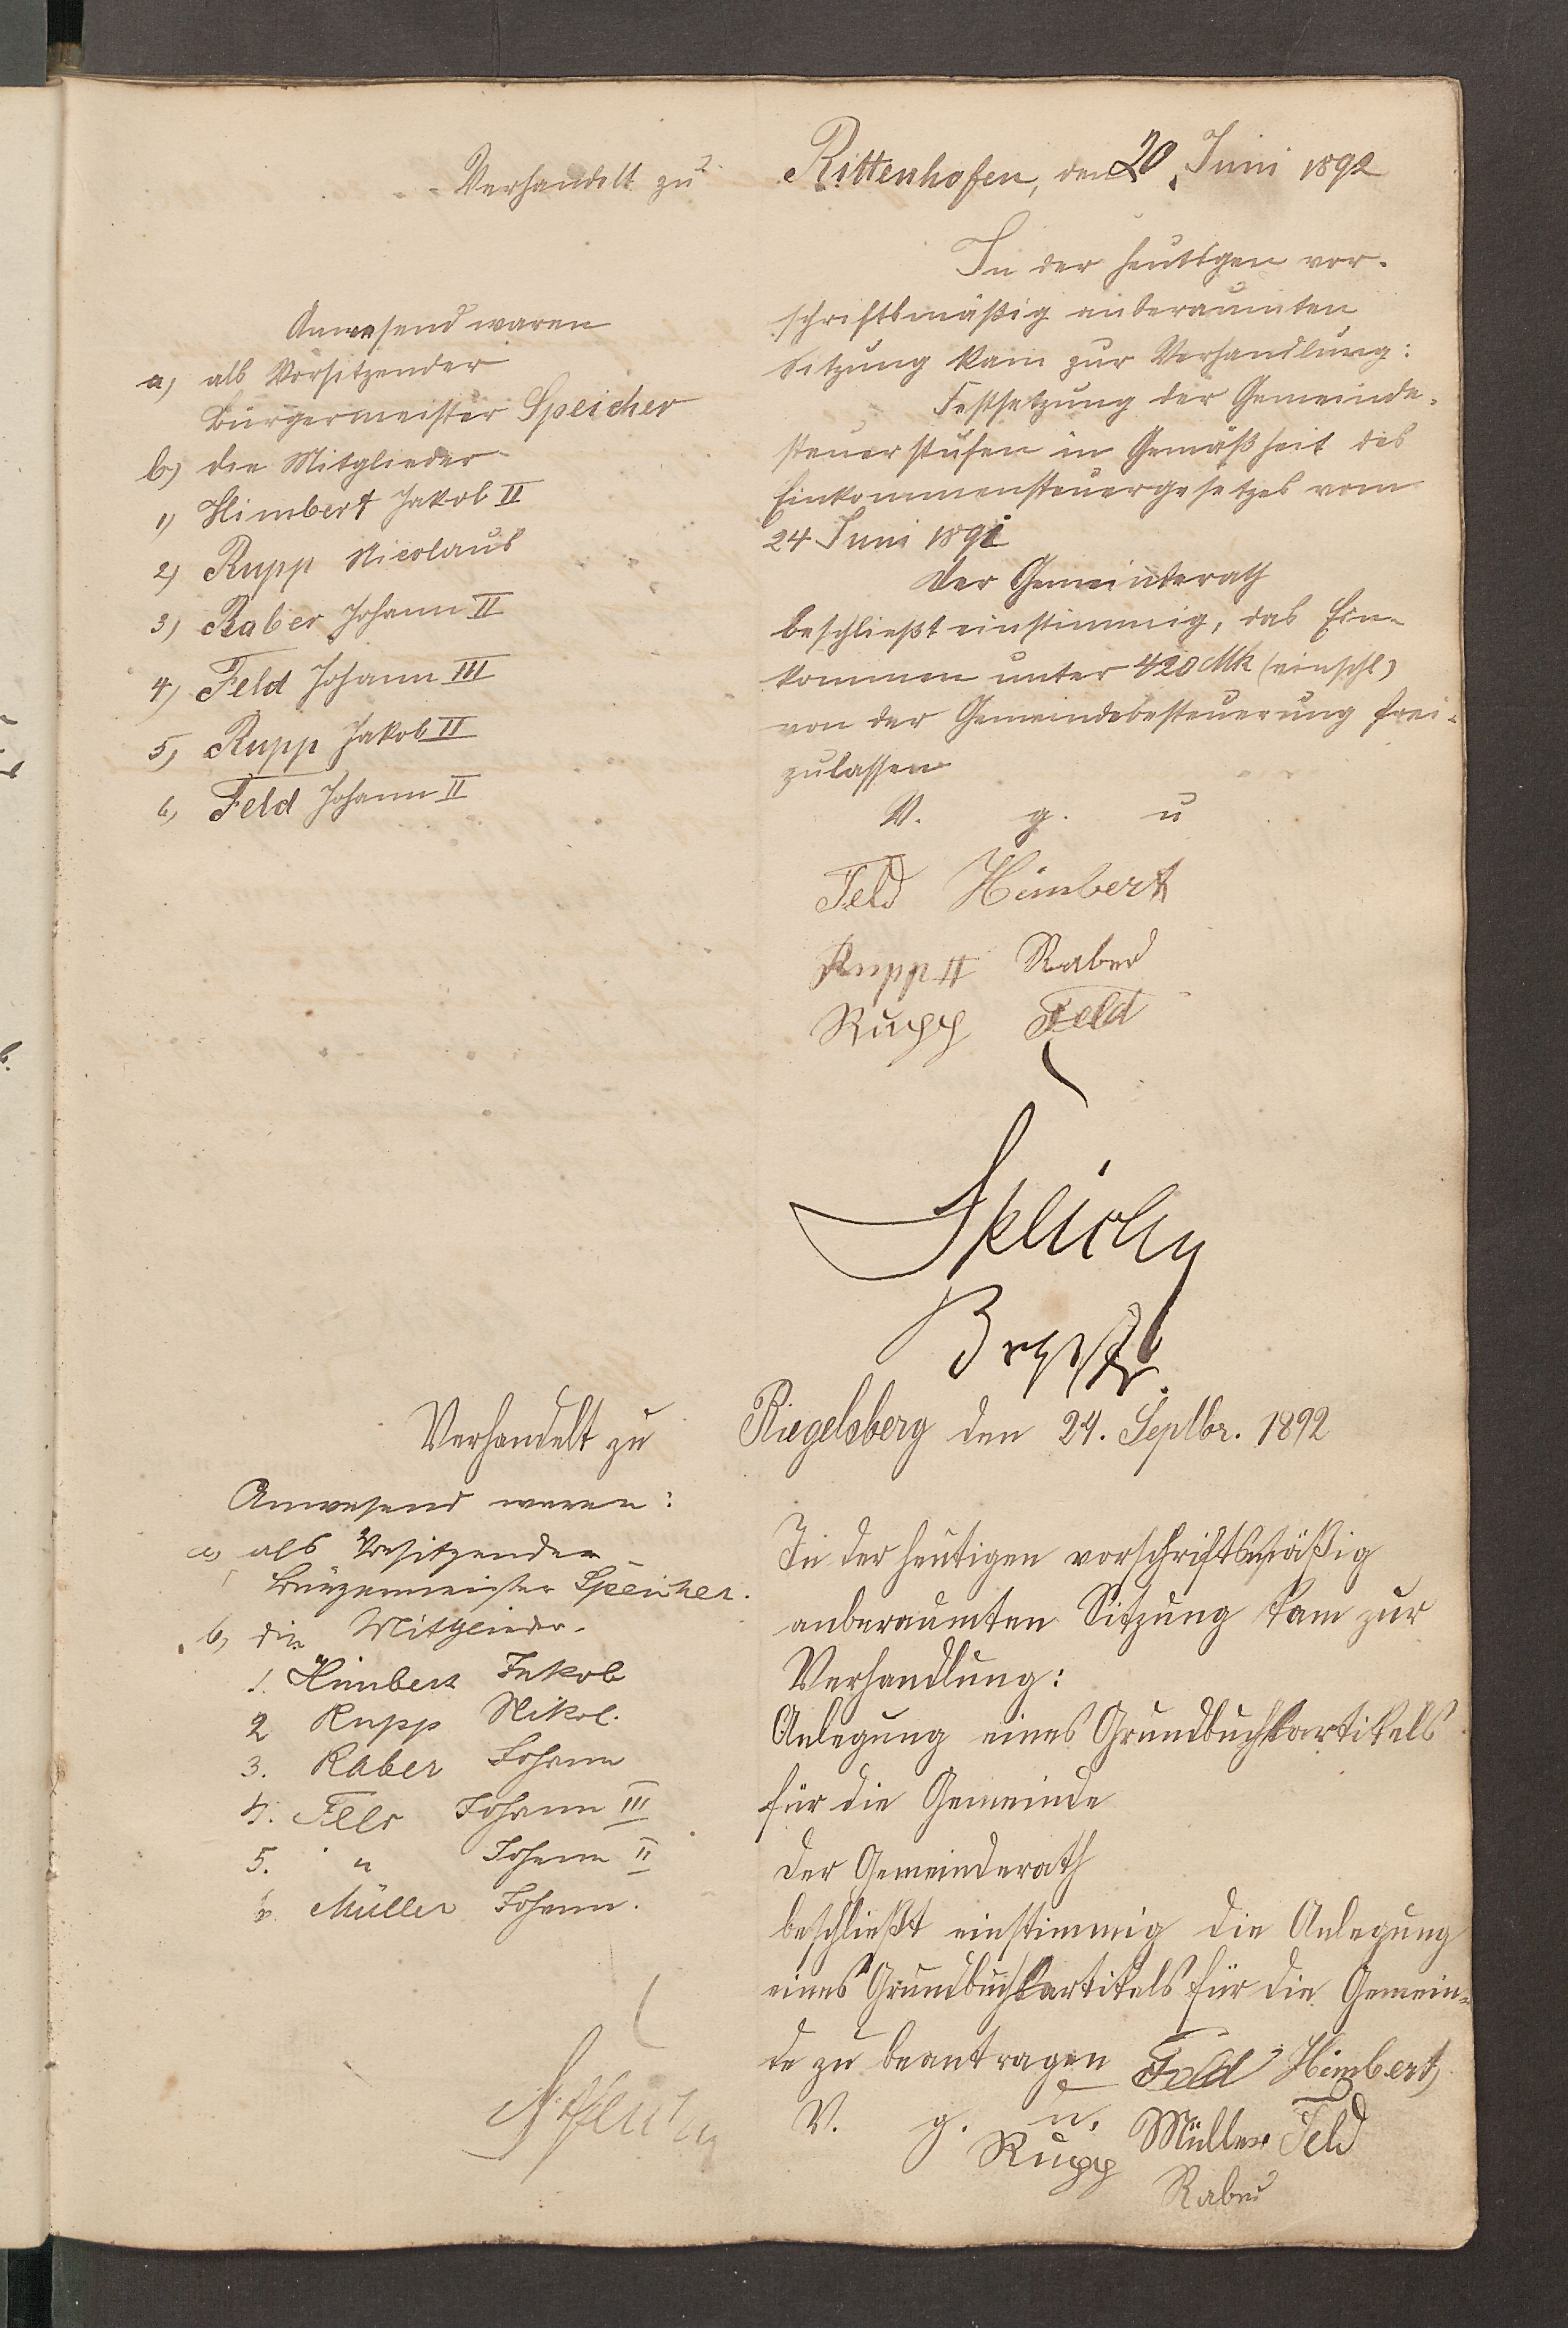 Verhandelt zu Rittenhofen, den 20. Juni 1892
Anwesend waren
a) als Vorsitzender
Bürgermeister Speicher
b) die Mitglieder
1) Himbert Jakob II
2) Rupp Nicolaus
3) Raber Johann II
4) Feld Johann III
5) Rupp Jakob II
6) Feld Johann II
In der heutigen vor-
schriftsmäßig anberaumten
Sitzung kam zur Verhandlung:
Festsetzung der Gemeinde-
steuerstufen in Gemäßheit des
Einkommensteuergesetzes vom
24 Juni 1891
Der Gemeinderath
beschließt einstimmig, das Ein-
kommen unter 420 Mk (einschl)
von der Gemeindebesteuerung frei-
zulassen
V. g. u
Feld Himbert
Rupp II Raber
Rupp Feld
Speicher
Brgmstr.
Verhandelt zu Riegelsberg den 24. Septbr. 1892
Anwesend waren:
a) als Vorsitzender
Bürgermeister Speicher.
b) die Mitglieder.
1. Himbert Jakob
2 Rupp Nikol.
3. Raber Johann
4. Feld Johann III
5. " Johann II
6. Müller Johann.
In der heutigen vorschriftsmäßig
anberaumten Sitzung kam zur
Verhandlung:
Anlegung eines Grundbuchartikels
für die Gemeinde
Der Gemeinderath
beschließt einstimmig die Anlegung
eines Grundbuchartikels für die Gemein-
de zu beantragen Feld Himbert
V. g. u. Müller Feld
Rupp
Raber
Speicher